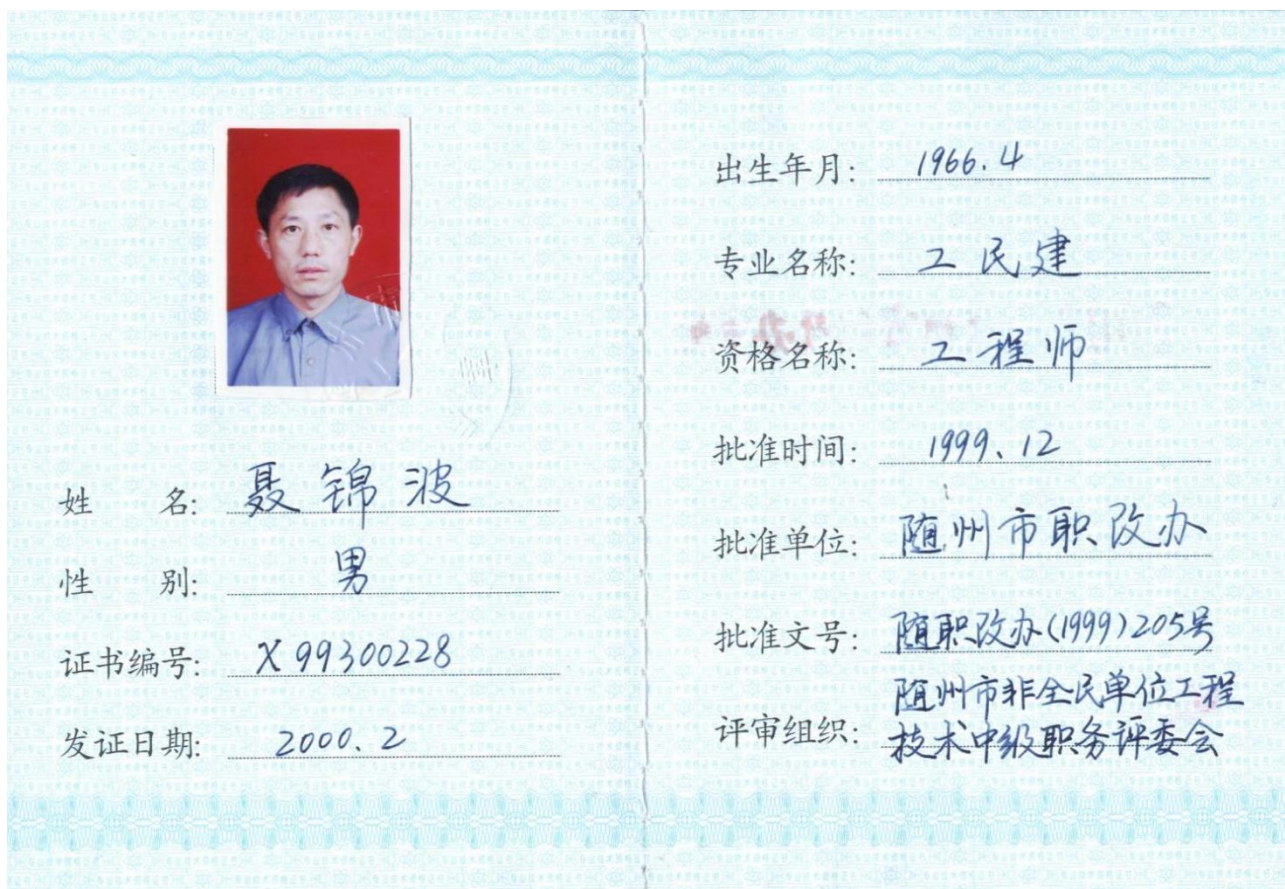 姓 名: 聂锦波
性 别: 男
证书编号: X99300228
发证日期: 2000.2
出生年月: 1966.4
专业名称: 工民建
资格名称: 工程师
批准时间: 1999、12
批准单位: 随州市职改办
批准文号: 随职改办(1999)205号
随州市非全民单位工程
评审组织: 技术中级职务评委会